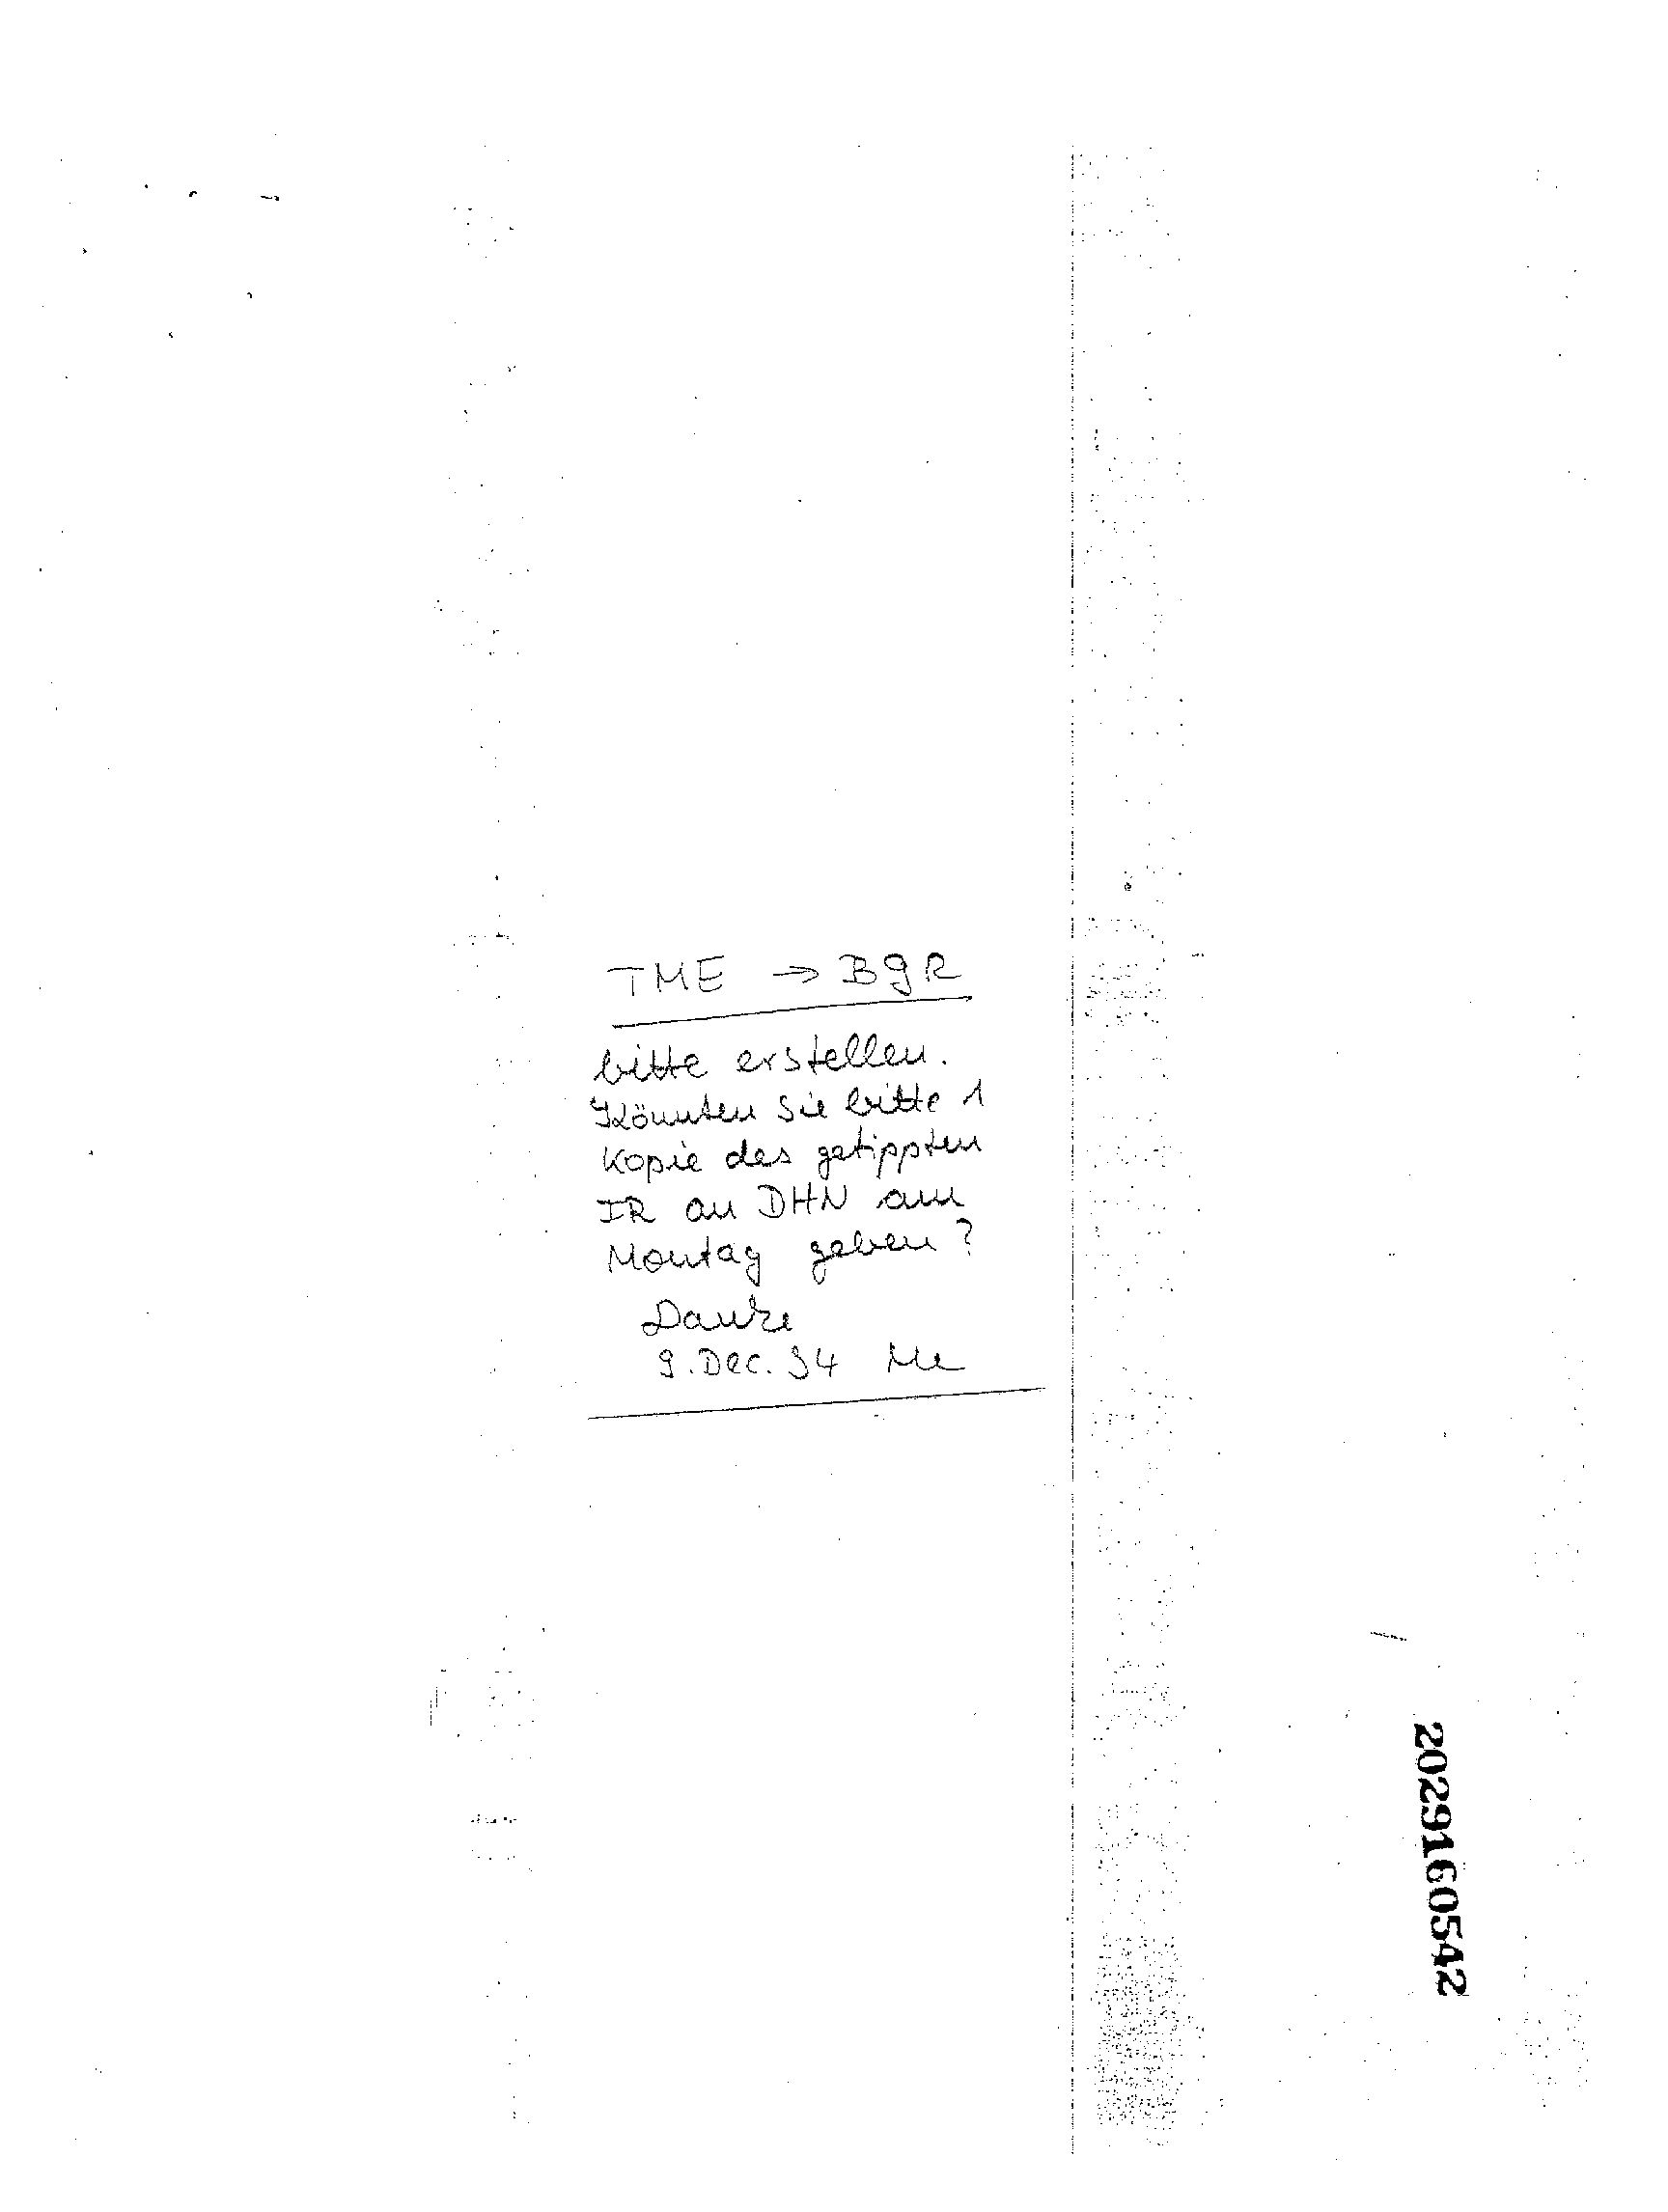 TME → BGR
bitte erstellen.
Könnten Sie bitte 1
Kopie des getippten
IR an DHN am
Montag geben?
Danke
9. Dec. 94 Me
2029160542